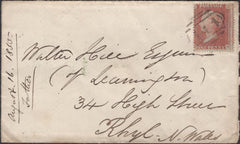 Walter Hill Esquire
(of Leamington)
34 High Street
Rhyl. N. Wales
August 16. 1855